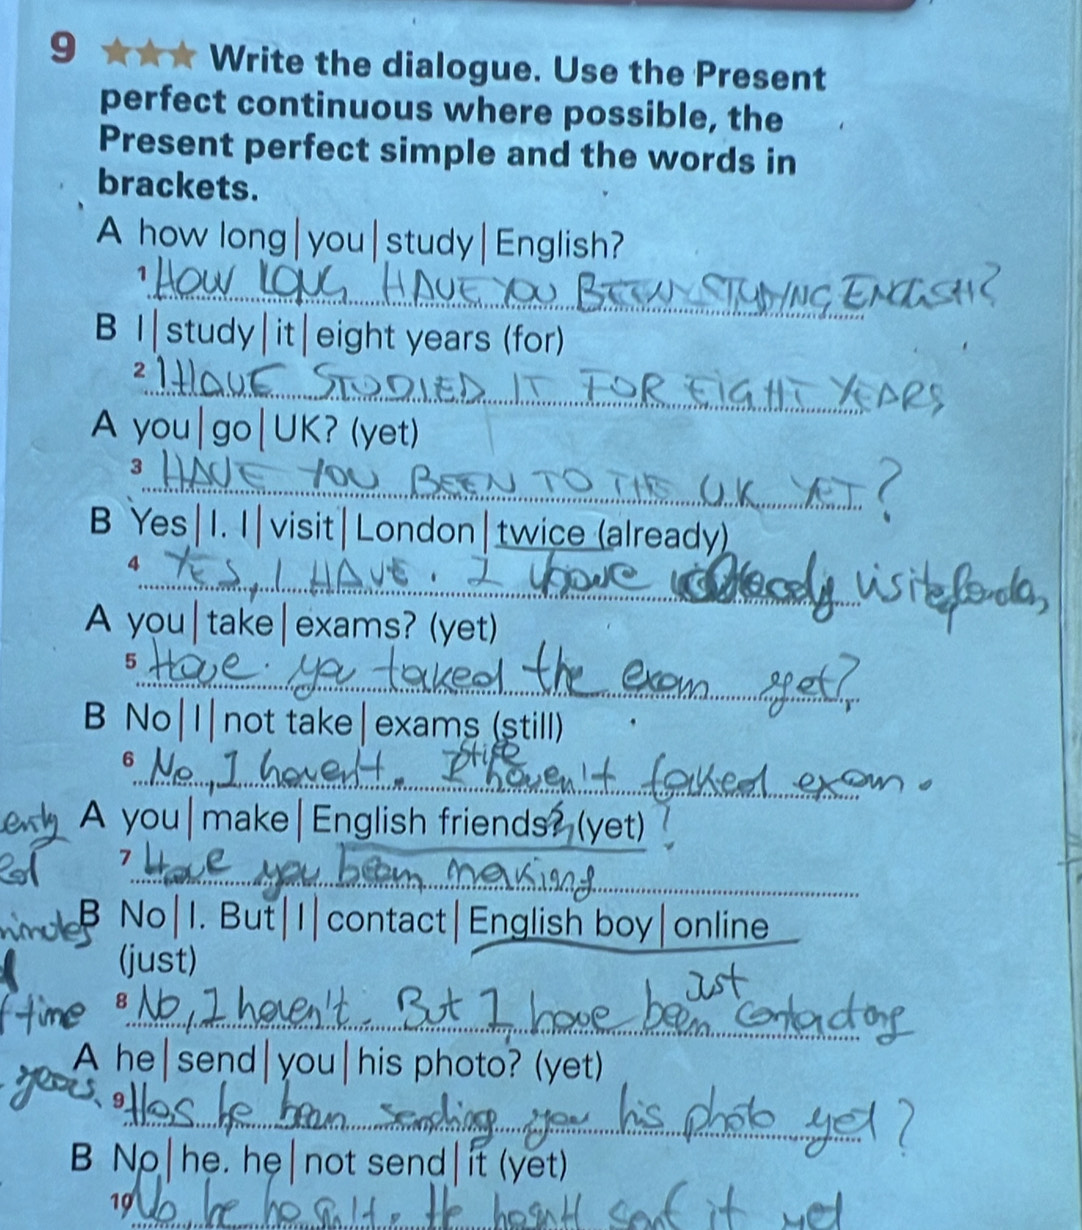 9 ★★★ Write the dialogue. Use the Present
perfect continuous where possible, the
Present perfect simple and the words in
brackets.
A how long | you | study | English?
1 HOW LONG HAVE YOU BEEN STUDYING ENGLISH?
B I | study | it | eight years (for)
2 I HAVE STUDIED IT FOR EIGHT YEARS
A you | go | UK? (yet)
3 HAVE YOU BEEN TO THE UK YET?
B Yes | I. I | visit | London | twice (already)
4 YES, I HAVE. I have already visited
A you | take | exams? (yet)
5 Have you taked the exam yet?
B No | I | not take | exams (still)
still
6 No, I haven't. I haven't taked exam.
A you | make | English friends? (yet)
7 Have you been making
B No | I. But | I | contact | English boy | online
(just)
just
time 8 No, I haven't. But I have been contacting
A he | send | you | his photo? (yet)
years. 9 Has he been sending you his photo yet?
B No | he. he | not send | it (yet)
10 No, he hasn't. He hasn't sent it yet